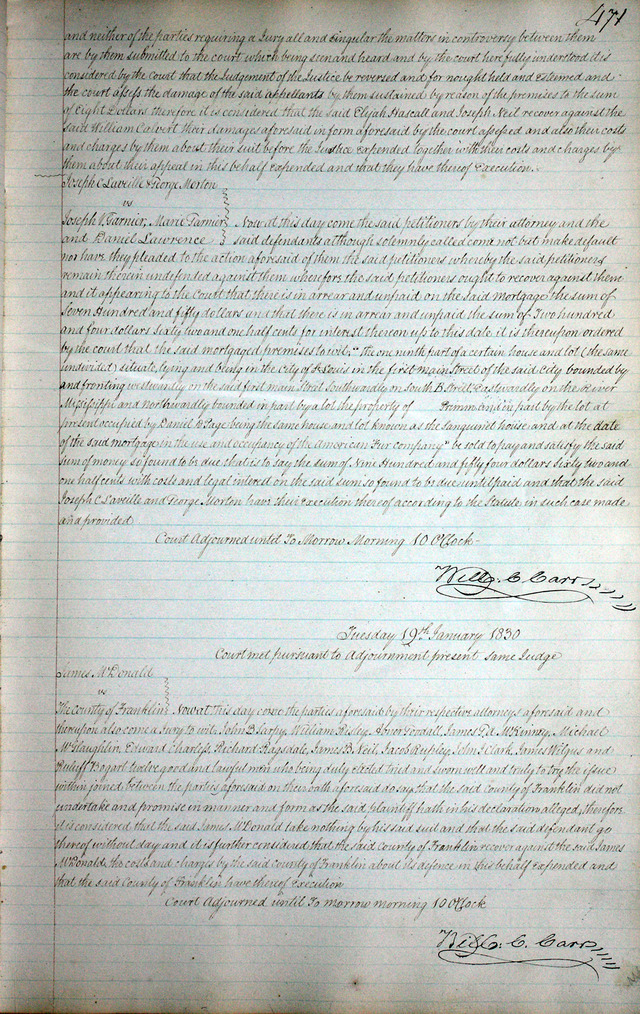 471
and neither of the parties requiring a Jury all and singular the matters in controversy between them
are by them submitted to the court which being seen and heard and by the court here fully understood it is
considered by the Court that the Judgement of the Justice be reversed and for nought held and esteemed and
the court assess the damage of the said appellants by them sustained by reason of the premises to the sum
of Eight Dollars therefore it is considered that the said Elijah Hascall and Joseph Neil recover against the
said William Calvert their damages aforesaid in form aforesaid by the court assessed and also their costs
and charges by them about their suit before the Justice expended together with their costs and charges by
them about their appeal in this behalf expended and that they have thereof Execution.
Joseph C Laveille & George Morton
vs
Joseph V. Garnier, Marie Garnier Now at this day come the said petitioners by their attorney and the
and Daniel Lawrence said defendants although solemnly called come not but make default
nor have they pleaded to the action aforesaid of them the said petitioners whereby the said petitioners
remain therein undefended against them wherefore the said petitioners ought to recover against them
and it appearing to the Court that there is in arrear and unpaid on the said mortgage the sum of
Seven Hundred and fifty dollars and that there is in arrear and unpaid the sum of Two hundred
and four dollars sixty two and one half cents for interest thereon up to this date it is thereupon ordered
by the court that the said mortgaged premises to wit, "The one ninth part of a certain house and lot (the same
undivided) situate, lying and being in the City of St Louis in the first main Street of the said City bounded by
and fronting westwardly on the said first main Street Southwardly on South B Street, Eastwardly on the River
Mississippi and northwardly bounded in part by a lot the property of and in part by the lot at
present occupied by Daniel D Page being the same house and lot known as the Sanguinet house and at the date
of the said mortgage in the use and occupancy of the American Fur company" be sold to pay and satisfy the said
sum of money so found to be due that is to say the sum of Nine Hundred and fifty four dollars Sixty two and
one half cents with costs and legal interest on the said sum so found to be due until paid and that the said
Joseph C Laveille and George Morton have their Execution thereof according to the Statute in such case made
and provided
Court Adjourned until To Morrow Morning 10 O'Clock-
Will: C Carr
Tuesday 19th January 1830
Court met pursuant to Adjournment present same Judge
James McDonald
vs
The County of Franklin Now at this day come the parties aforesaid by their respective attorneys aforesaid and
thereupon also come a Jury to wit John B Sarpy, William Risley, James McKenney, Michael
McGlaughlin, Edward Charless, Richard Ragsdale, James B Neil, Jacob John J Clark, James Wilgus and
Ruliff Bogart twelve good and lawful men who being duly elected tried and sworn well and truly to try the issue
within joined between the parties aforesaid on their oath aforesaid do say that the said county of Franklin did not
undertake and promise in manner and form as the said plaintiff hath in his declaration alleged, therefore
it is considered that the said James McDonald take nothing by his said suit and that the said defendant go
thereof without day and it is further considered that the said County of Franklin recover against the said James
McDonald, the costs and charges by the said county of Franklin about its defence in this behalf Expended and
that the said County of Franklin have thereof Execution
Court Adjourned until To morrow morning 10 O'Clock
Will: C. Carr